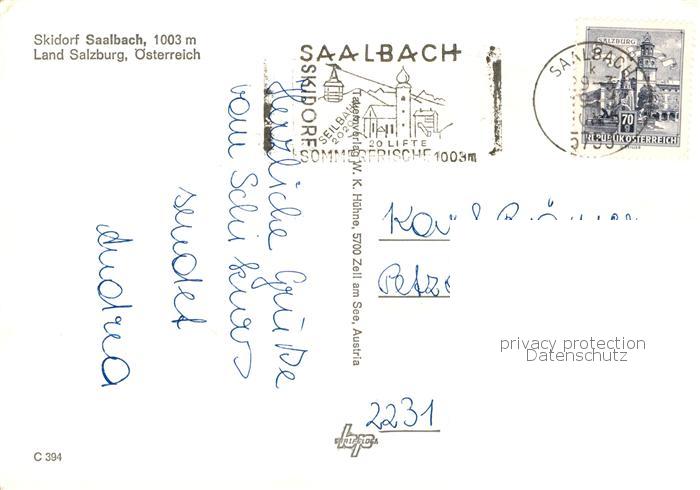 Skidorf Saalbach, 1003 m
Land Salzburg, Österreich
SAALBACH
SKIDORF
SEILBAHN
2020
20 LIFTE
SOMMERFRISCHE 1003m
SAALBACH
5753
SALZBURG
70
REPUBLIK ÖSTERREICH
Herzliche Grüße
vom Schikurs
sendet
Andrea
Tauernverlag W. K. Hühne, 5700 Zell am See, Austria
2231
privacy protection
Datenschutz
C 394